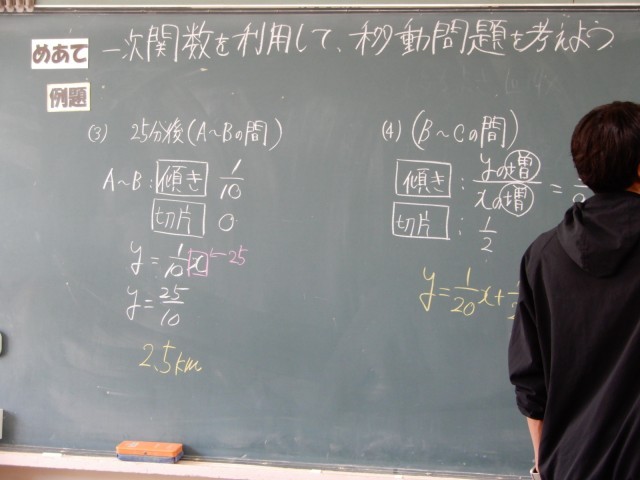 めあて 一次関数を利用して、移動問題を考えよう
例題
(3) 25分後(A~Bの間)
A~B:傾き 1/10
切片 0
y = 1/10 x ←25
y = 25/10
2.5km
(4) (B~Cの間)
傾き : yの増/xの増 =
切片 : 1/2
y = 1/20 x +